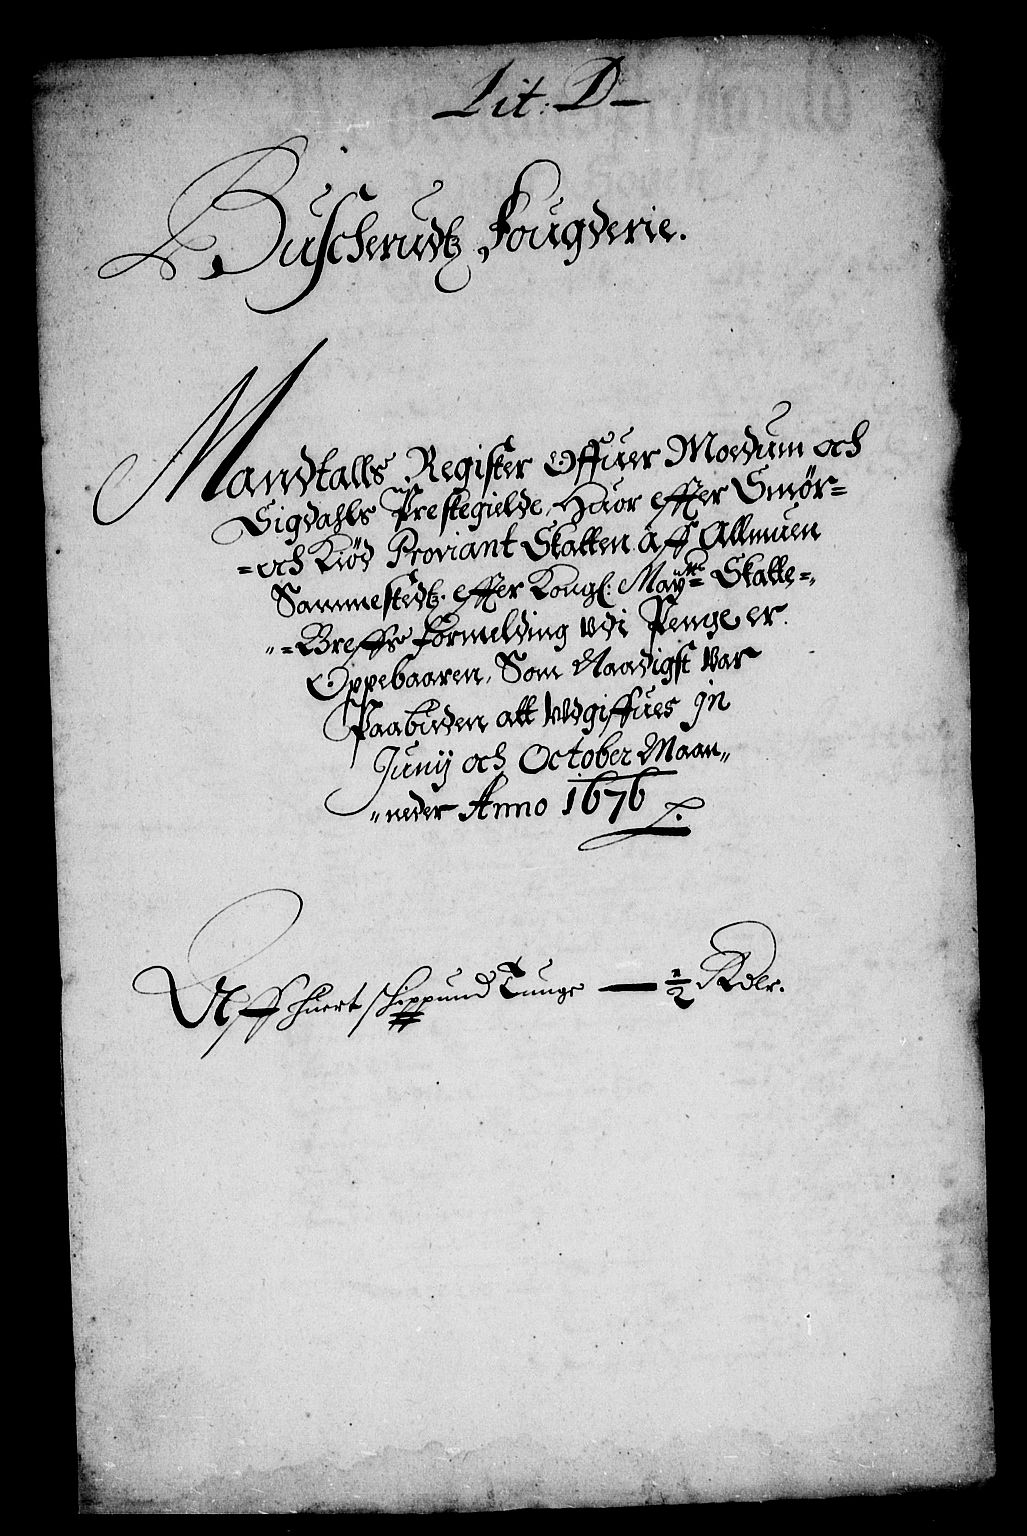 Lit: D
Buscherudtz Fougderie.
Mandtalls Register Offuer Modum och
Sigdahls Prestegielde, Huor effter Smør=
=och Kiød Proviant Skatten aff Allmuen
Sammestedtz effter Kongl: Maytz Skatte=
=Breffs formelding udi Penge er
Oppebaaren, Som Naadigst var
Paabuden att udgiffues Jn
Junij och October Maan„
„neder Anno 1676
Aff huert schippund Tunge — ½ Rdlr.